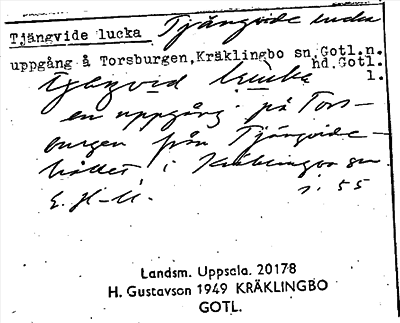 Tjängvide lucka Tjängvide lucka
uppgång å Torsburgen, Kräklingbo sn, Gotl.n.
hd. Gotl.
l.
en uppgång på Tors-
burgen från Tjängvide-
hållet i Kräklingbo sn
s. 55
Landsm. Uppsala. 20178
H. Gustavson 1949 KRÄKLINGBO
GOTL.